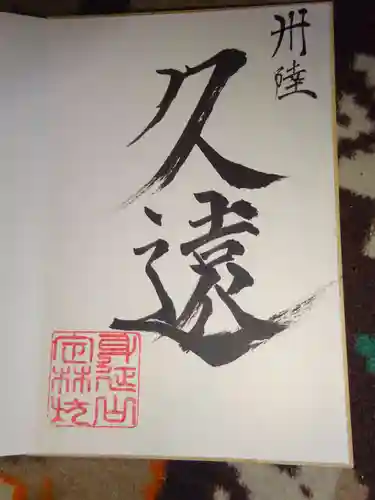 卅陸
久遠
身延山
定林坊